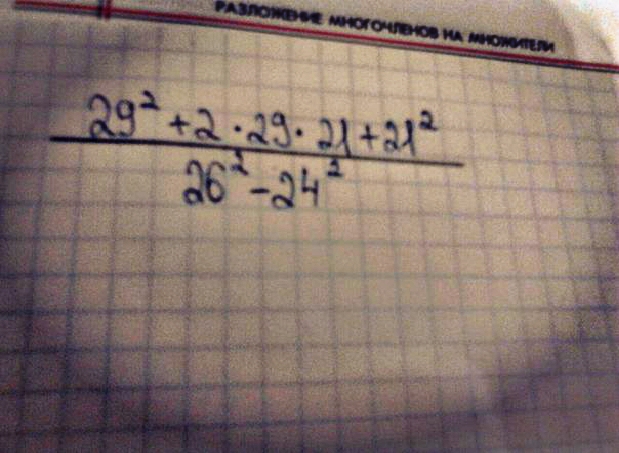 РАЗЛОЖЕНИЕ МНОГОЧЛЕНОВ НА МНОЖИТЕЛИ
29² + 2 · 29 · 21 + 21²
26² - 24²